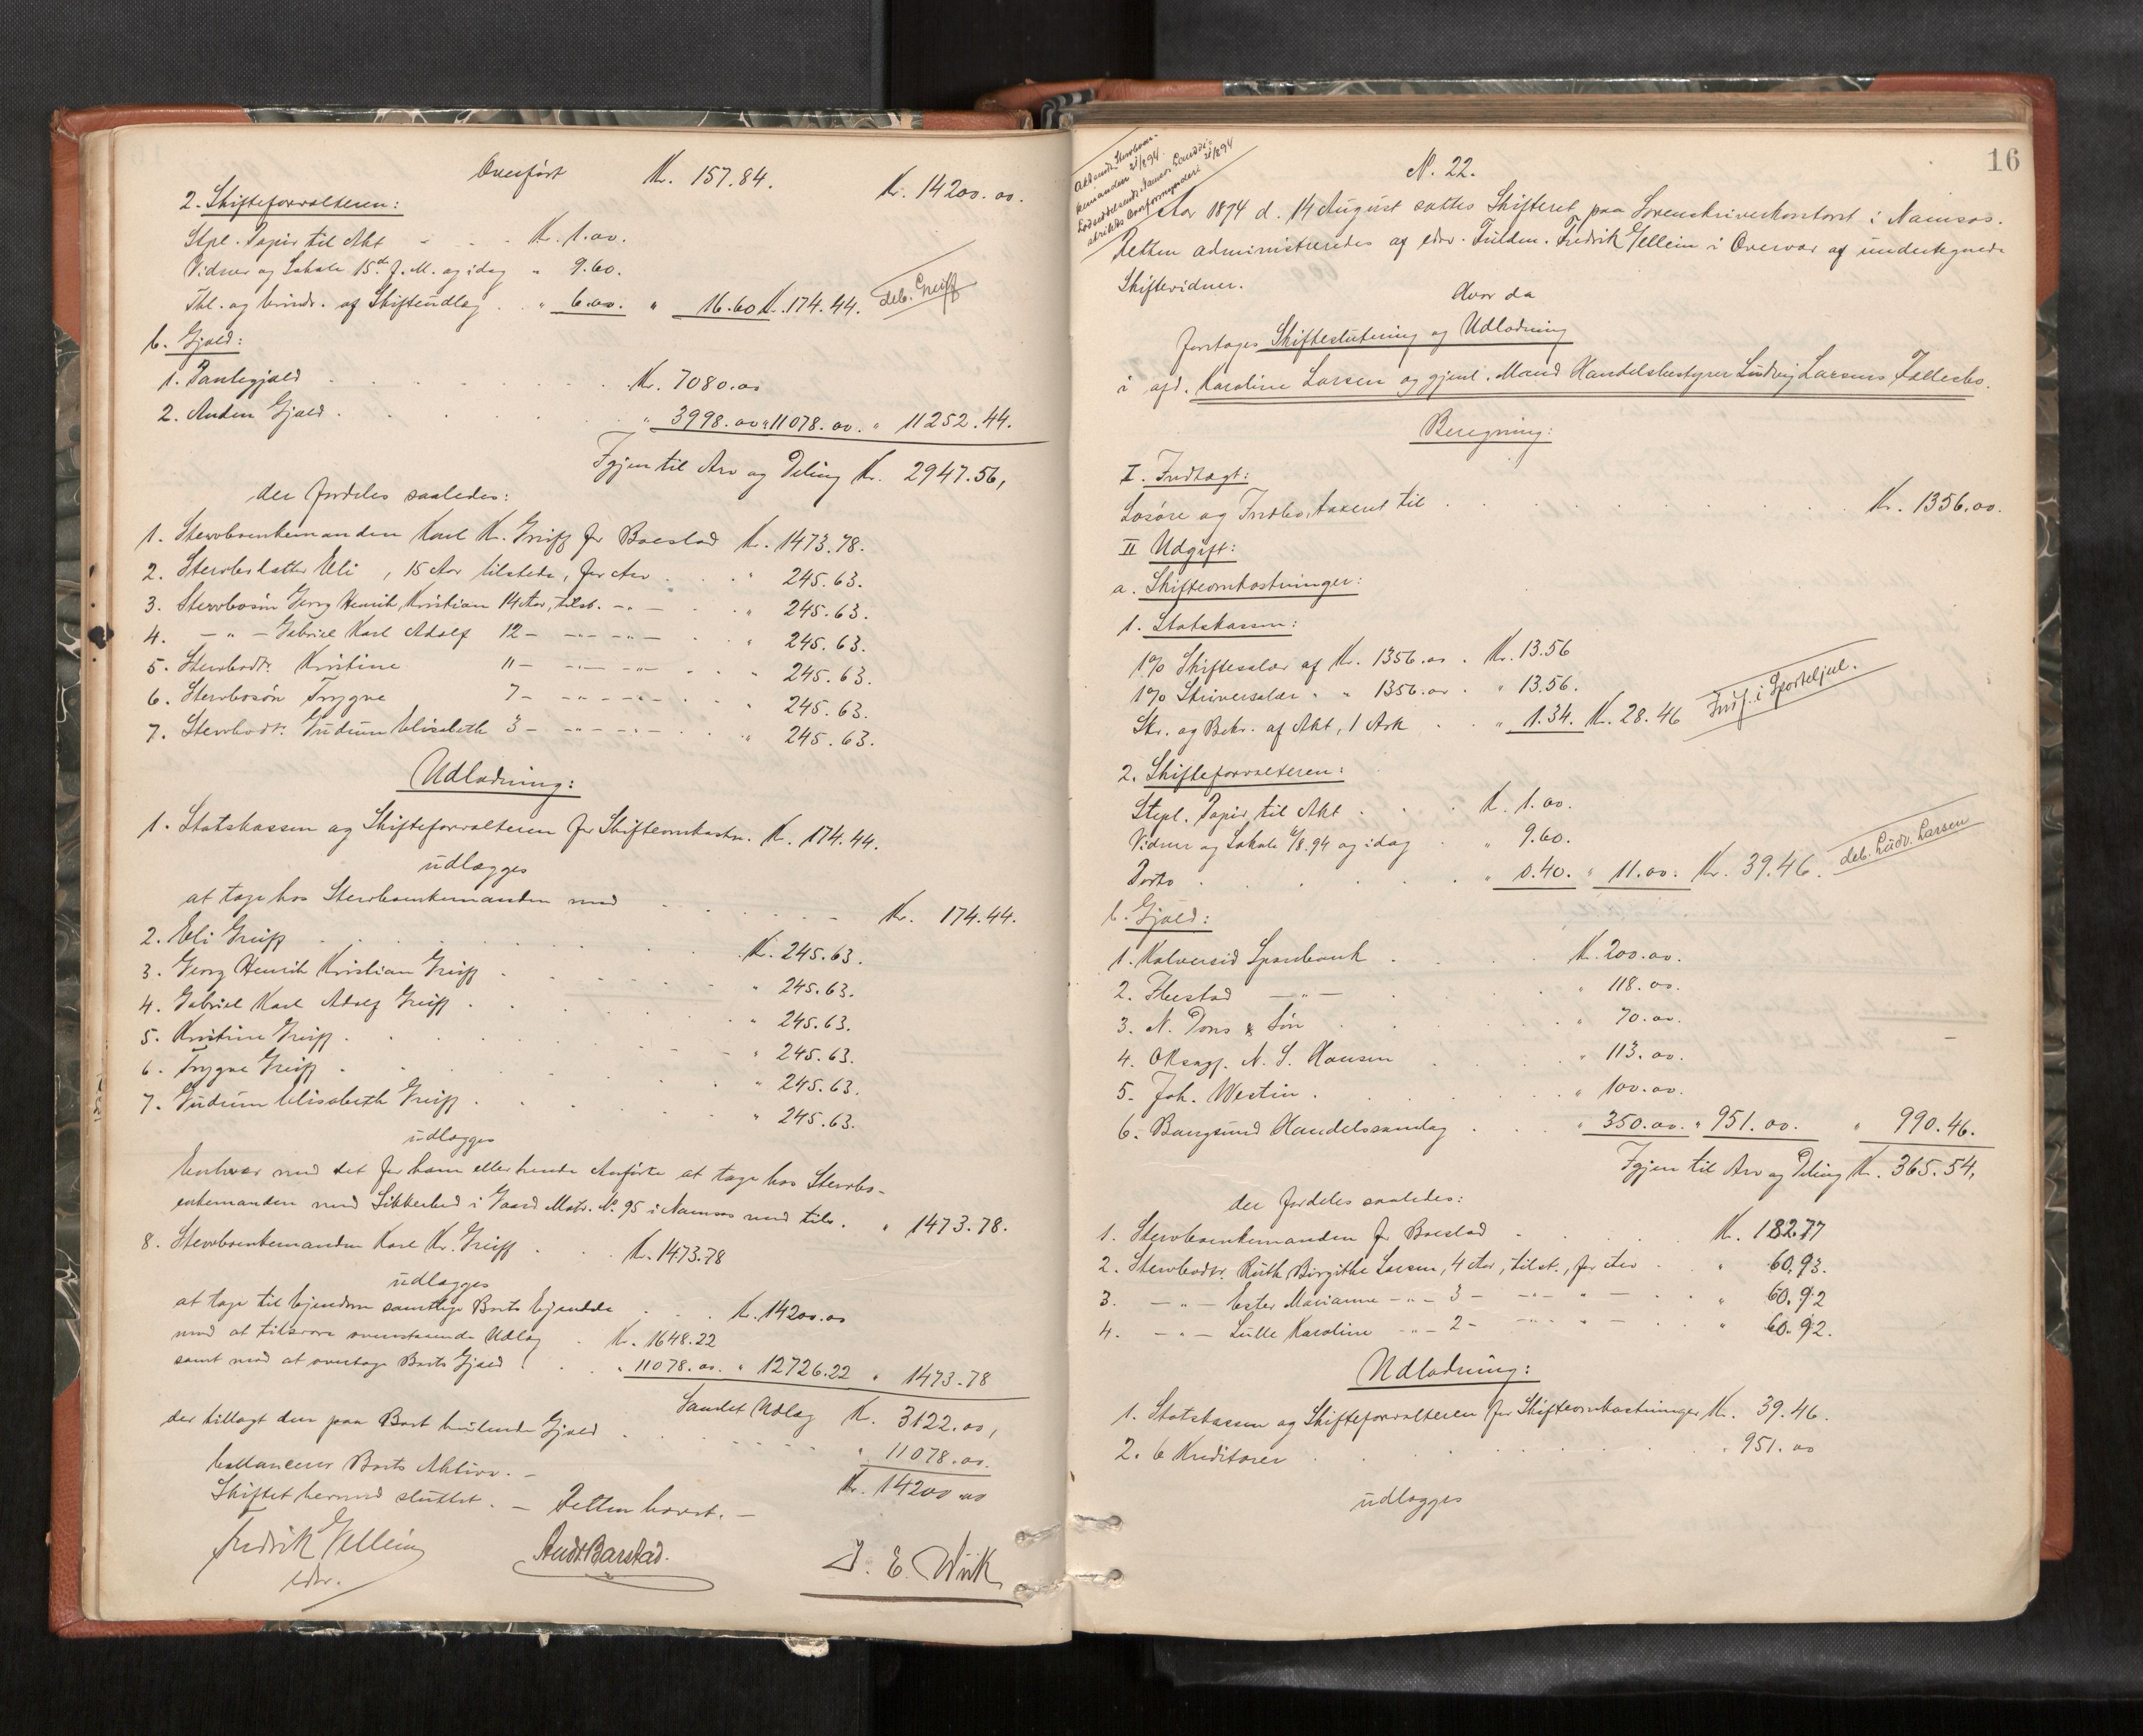 Overført Kr. 157.84. Kr. 14200.00.
2. Skifteforvalteren:
Stpl. Papir til Akt - . . Kr. 1.00.
Vidner og Lokale 15de f. M. og idag " 9.60.
Thl. og af Skifteudlæg . . " 6.00. " 16.60 Kr. 174.44.
deb. Greiff
b. Gjæld:
1. Pantegjæld . . . Kr. 7080.00
2. Anden Gjæld . . . " 3998.00 " 11078.00. " 11252.44.
Igjen til Arv og Deling Kr. 2947.56,
der fordeles saaledes:
1. Stervboenkemanden Karl Kr. Greiff for Boeslod Kr. 1473.78.
2. Stervbodatter Eli, 15 Aar tilstede, for Arv . . " 245.63.
3. Stervbosøn Georg Henrik Kristian 14 Aar, tilst. -"- . " 245.63.
4. -"- Gabriel Karl Adolf 12 - -"- -"- . " 245.63.
5. Stervbodtr. Kristine 11 - -"- -"- . " 245.63.
6. Stervbosøn Trygve 7 - -"- -"- . " 245.63.
7. Stervbodtr. Gudrun Elisabeth 3 - -"- -"- . " 245.63.
Udlodning:
1. Statskassen og Skifteforvalteren for Skifteomkostn. Kr. 174.44.
udlægges
at tage hos Stervboenkemanden med . . . Kr. 174.44.
2. Eli Greiff . . . Kr. 245.63.
3. Georg Henrik Kristian Greiff . . . " 245.63.
4. Gabriel Karl Adolf Greiff . . . " 245.63.
5. Kristine Greiff . . . " 245.63.
6. Trygve Greiff . . . " 245.63.
7. Gudrun Elisabeth Greiff . . . " 245.63.
udlægges
Enhver med det for ham eller hende Anførte at tage hos Stervbo-
enkemanden med Sikkerhed i Gaard Matr. No 95 i Namsos med tilb. " 1473.78.
8. Stervboenkemanden Karl Kr. Greiff . . Kr. 1473.78
udlægges
at tage til Eiendom samtlige Boets Eiendele . . Kr. 14200.00
mod at tilsvare ovenstaaende Udlæg . Kr. 1648.22
samt mod at overtage Boets Gjæld . . " 11078.00. " 12726.22 " 1473.78
Samlet Udlæg Kr. 3122.00,
der tillagt den paa Boet hvilende Gjæld . . . " 11078.00.
ballancerer Boets Aktiva. - Kr. 14200.00
Skiftet hermed sluttet. - Retten hævet. -
Fredrik Gellein
edsv.
Andr Barstad.
J. E. Wiik
16
N. 22.
Aar 1894 d. 14 August sattes Skifteret paa Sorenskriverkontoret i Namsos.
Retten administreredes af edsv. Fuldm. Fredrik Gellein i Overvær af undertegnede
Skiftevidner.
Hvor da
foretages Skifteslutning og Udlodning
i afd. Karoline Larsen og gjenl. Mand Handelsbestyrer Ludvig Larsens Fællesbo.
Beregning:
I. Indtægt:
Løsøre og Indbo, taxeret til . . . Kr. 1356.00.
II Udgift:
a. Skifteomkostninger:
1. Statskassen:
1% Skiftesalær af Kr. 1356.00 . Kr. 13.56
1% Skriversalær " " 1356.00 . " 13.56.
Skr. og Bekr. af Akt, 1 Ark . . " 1.34. Kr. 28.46
Indf. i Sporteljnl.
2. Skifteforvalteren:
Stepl. Papir til Akt . . . K. 1.00.
Vidner og Lokale 6/8.94 og idag . " 9.60.
Porto . . . " 0.40. " 11.00. Kr. 39.46.
deb. Ludv. Larsen
b. Gjæld:
1. Kolvereid Sparebank . . . K. 200.00.
2. Fluestad -"- . . " 118.00.
3. N. Dons & Søn . . . " 70.00.
4. Oksagf. N. S. Hansen . . " 113.00.
5. Joh. Westin . . . " 100.00.
6. Bangsund Handelssamlag . . " 350.00. " 951.00. " 990.46.
Igjen til Arv og Deling Kr. 365.54,
der fordeles saaledes:
1. Stervboenkemanden for Boeslod . . . Kr. 182.77
2. Stervbodtr. Ruth Birgithe Larsen, 4 Aar, tilst., for Arv . . " 60.93.
3. -"- Ester Marianne -"- 3 - -"- " - . . " 60.92
4. -"- Lulle Karoline -"- 2 - -"- " - . . " 60.92.
Udlodning:
1. Statskassen og Skifteforvalteren for Skifteomkostninger Kr. 39.46.
2. 6 Kreditorer . . . " 951.00
udlægges